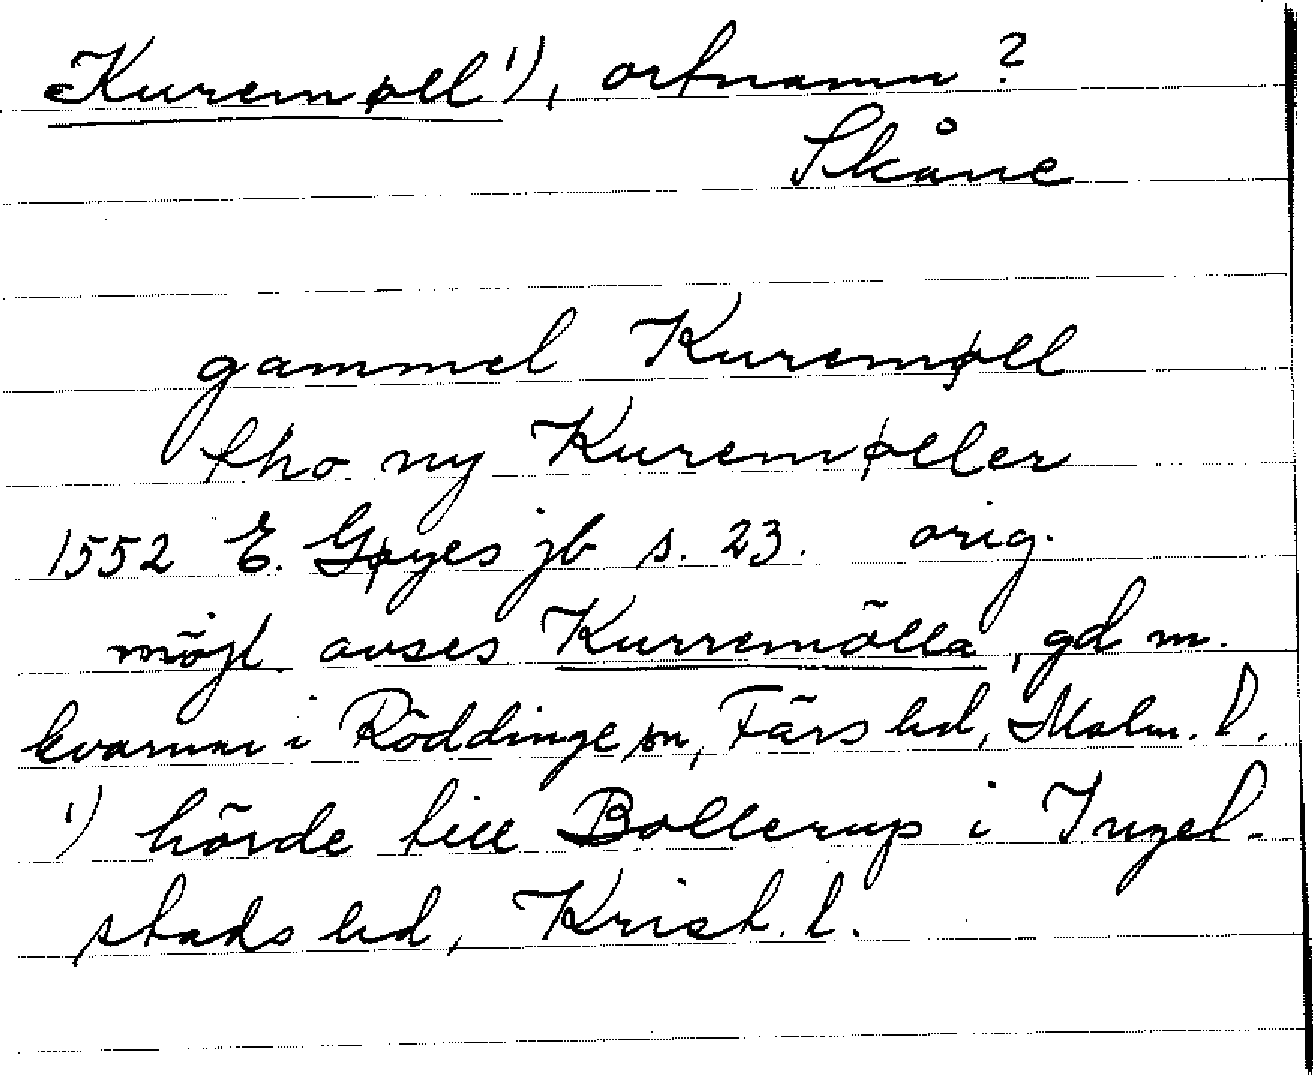 Kuremøll¹), ortnamn?
Skåne
gammel Kuremøll
tho ny Kuremøller
1552 E. Gøyes jb s. 23. orig.
möjl avses Kurremölla, gd m.
kvarnar i Röddinge sn, Färs hd, Malm. l.
¹) hörde till Bollerup i Ingel-
stads hd, Krist. l.